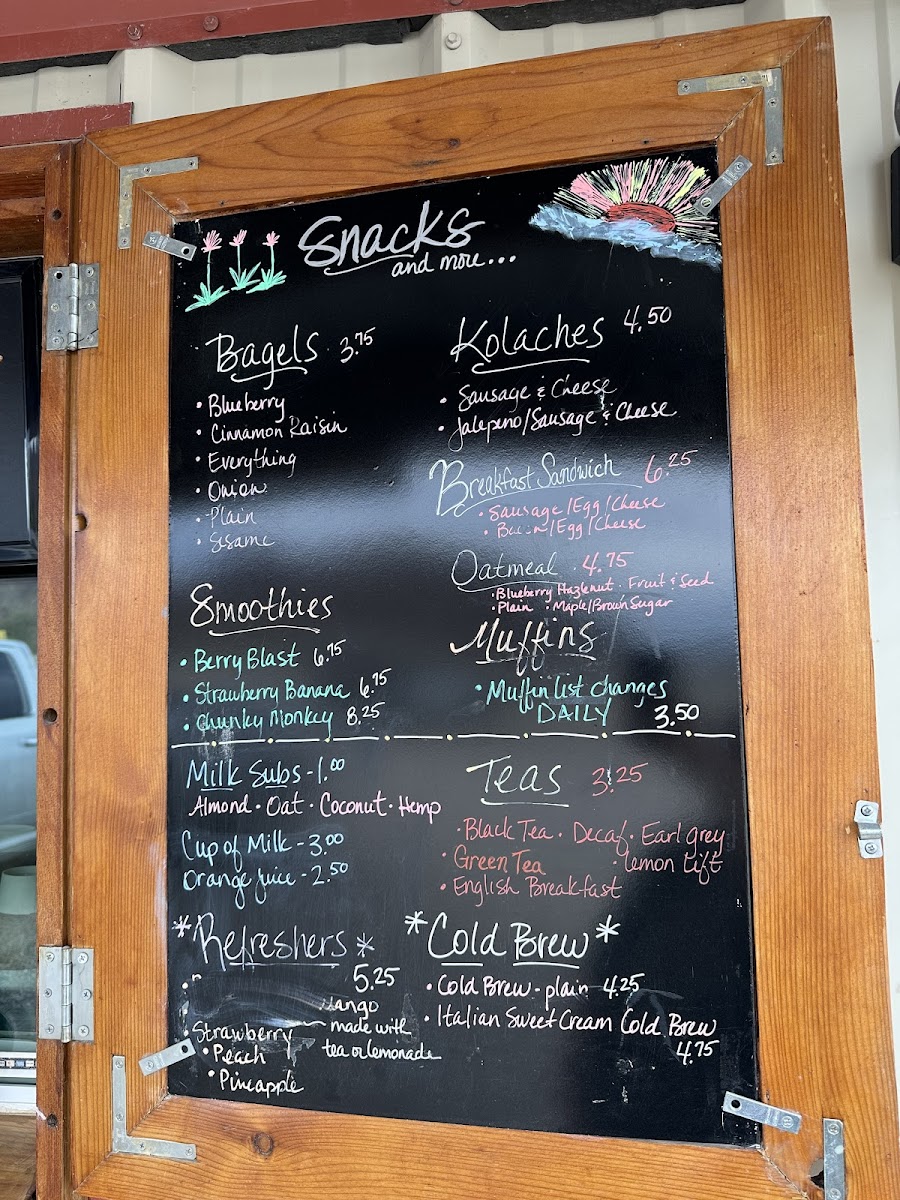 Snacks
and more...
Bagels 3.75
• Blueberry
• Cinnamon Raisin
• Everything
• Onion
• Plain
• Sesame
Smoothies
• Berry Blast 6.75
• Strawberry Banana 6.75
• Chunky Monkey 8.25
Kolaches 4.50
• Sausage & Cheese
• Jalepeno/Sausage & Cheese
Breakfast Sandwich 6.25
• Sausage/Egg/Cheese
• Bacon/Egg/Cheese
Oatmeal • 4.75
• Blueberry Hazlenut • Fruit & Seed
• Plain • Maple/Brown Sugar
Muffins
• Muffin list changes
DAILY 3.50
Milk Subs - 1.00
Almond • Oat • Coconut • Hemp
Cup of Milk - 3.00
Orange Juice - 2.50
Teas 3.25
• Black Tea • Decaf • Earl grey
• Green Tea • lemon Lift
• English Breakfast
*Refreshers*
5.25
Strawberry
• Peach
• Pineapple
made with
tea or lemonade
*Cold Brew*
• Cold Brew - plain 4.25
• Italian Sweet Cream Cold Brew
4.75